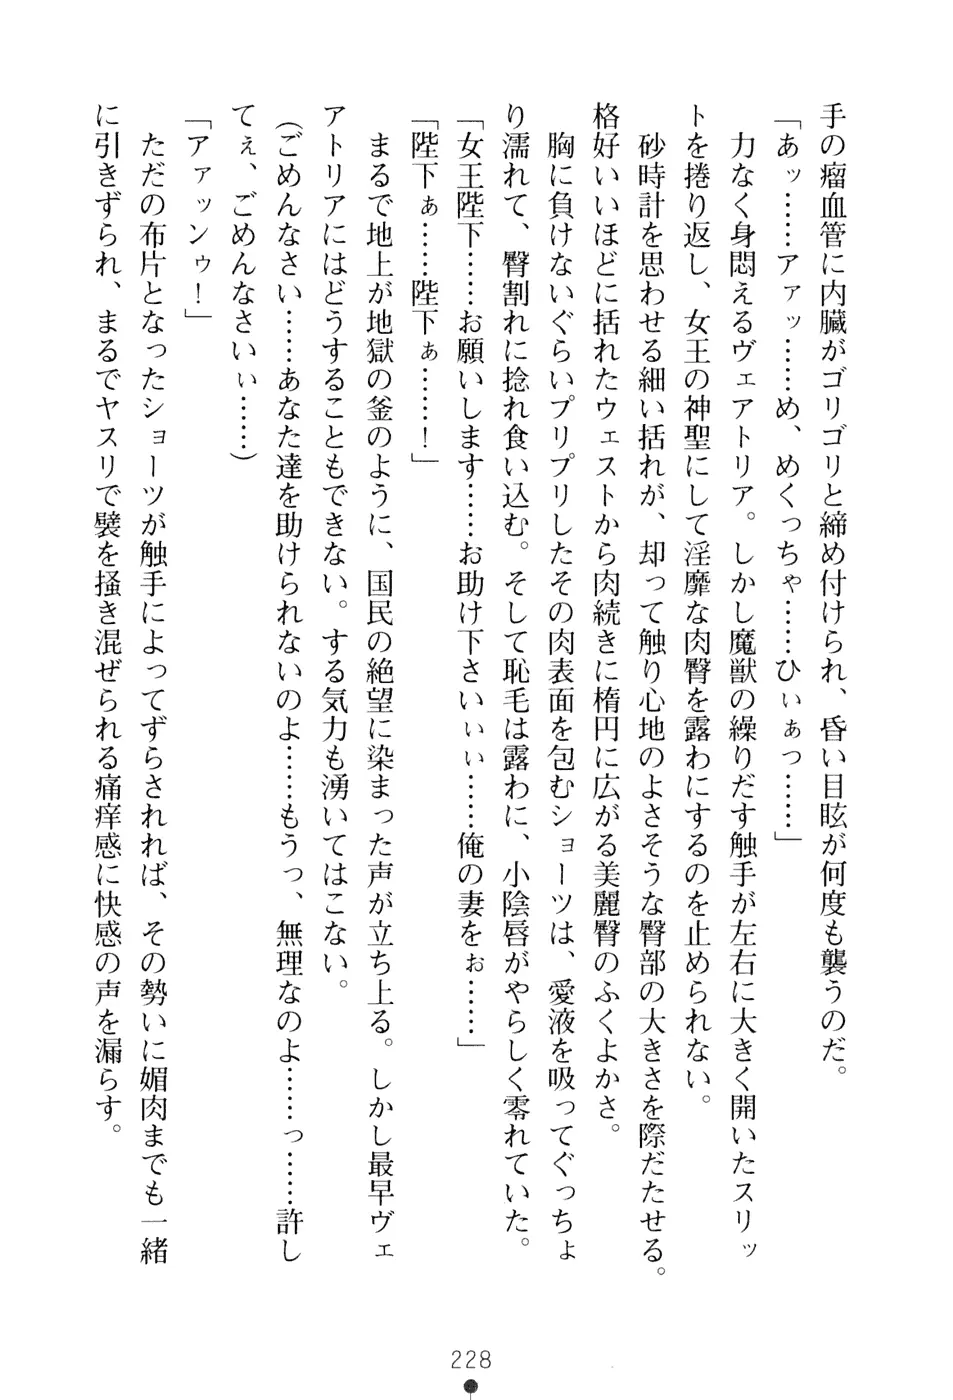 手の瘤血管に内臓がゴリゴリと締め付けられ、昏い目眩が何度も襲うのだ。
「あッ……アァッ……め、めくっちゃ……ひぃぁっ……」
力なく身悶えるヴェアトリア。しかし魔獣の繰りだす触手が左右に大きく開いたスリッ
トを捲り返し、女王の神聖にして淫靡な肉臀を露わにするのを止められない。
砂時計を思わせる細い括れが、却って触り心地のよさそうな臀部の大きさを際だたせる。
格好いいほどに括れたウェストから肉続きに楕円に広がる美麗臀のふくよかさ。
胸に負けないぐらいプリプリしたその肉表面を包むショーツは、愛液を吸ってぐっちょ
り濡れて、臀割れに捻れ食い込む。そして恥毛は露わに、小陰唇がやらしく零れていた。
「女王陛下……お願いします……お助け下さいぃぃ……俺の妻をぉ……」
「陛下ぁ……陛下ぁ……！」
まるで地上が地獄の釜のように、国民の絶望に染まった声が立ち上る。しかし最早ヴェ
アトリアにはどうすることもできない。する気力も湧いてはこない。
（ごめんなさい……あなた達を助けられないのよ……もうっ、無理なのよ……っ……許し
てぇ、ごめんなさいぃ……）
「アァッンゥ！」
ただの布片となったショーツが触手によってずらされれば、その勢いに媚肉までも一緒
に引きずられ、まるでヤスリで襞を掻き混ぜられる痛痒感に快感の声を漏らす。
228